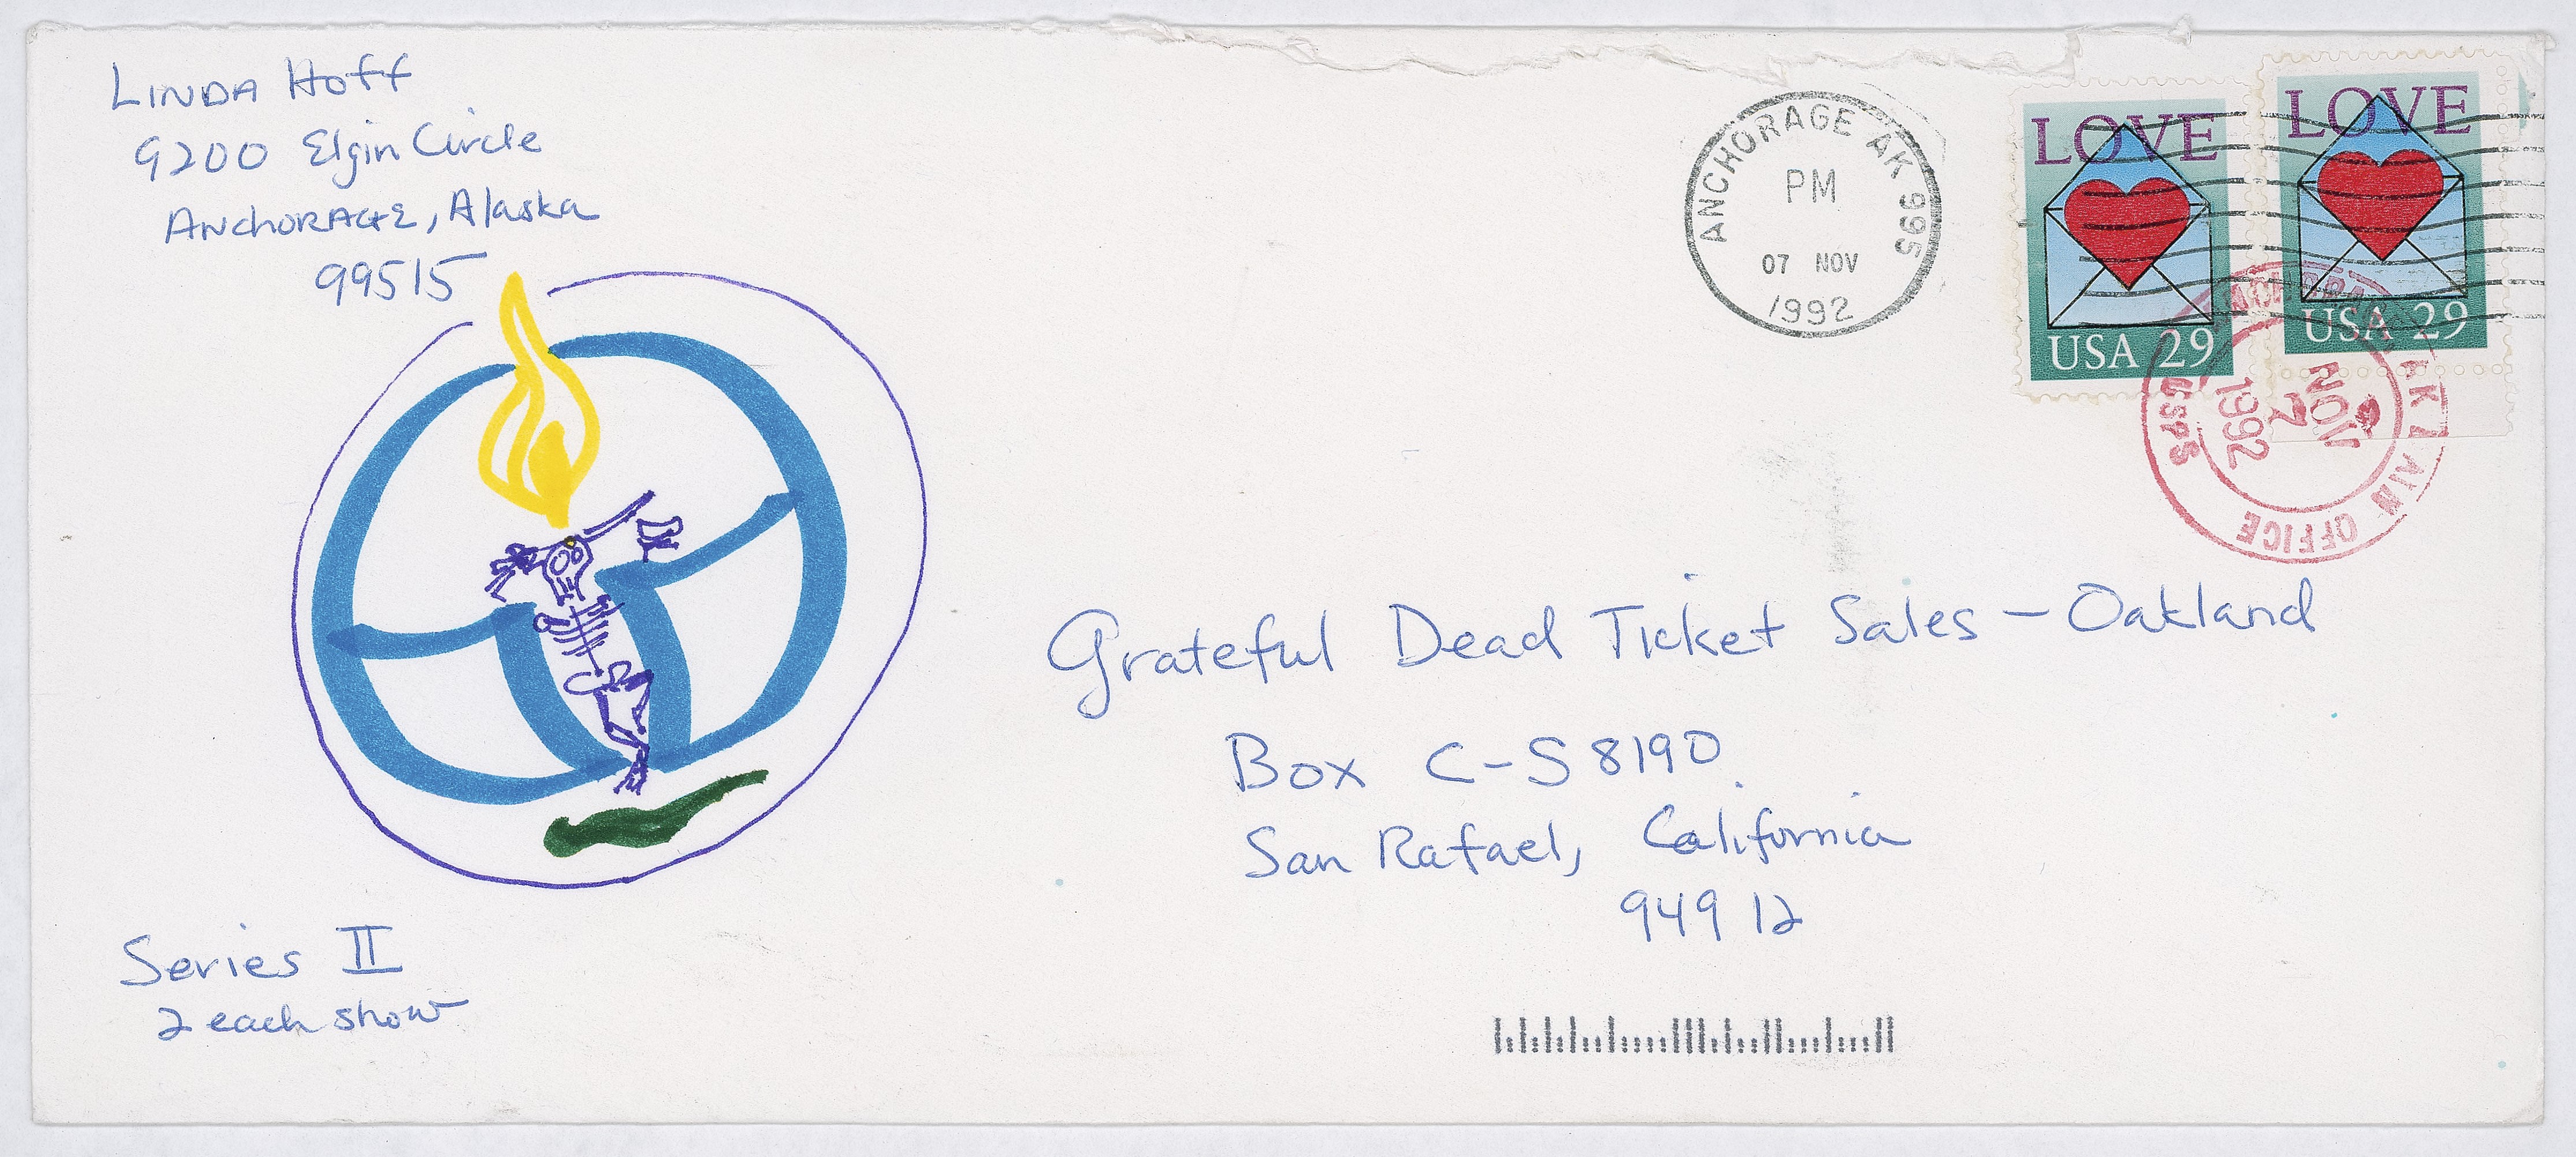 LINDA Hoff
9200 Elgin Circle
ANchORAGE, Alaska
99515
ANCHORAGE AK 995
PM
07 NOV
1992
LOVE
USA 29
LOVE
USA 29
ANCHORAGE, AK
MAIN OFFICE
USPS
NOV
7
1992
Grateful Dead Ticket Sales - Oakland
Box C-S 8190
San Rafael, California
94912
Series II
2 each show